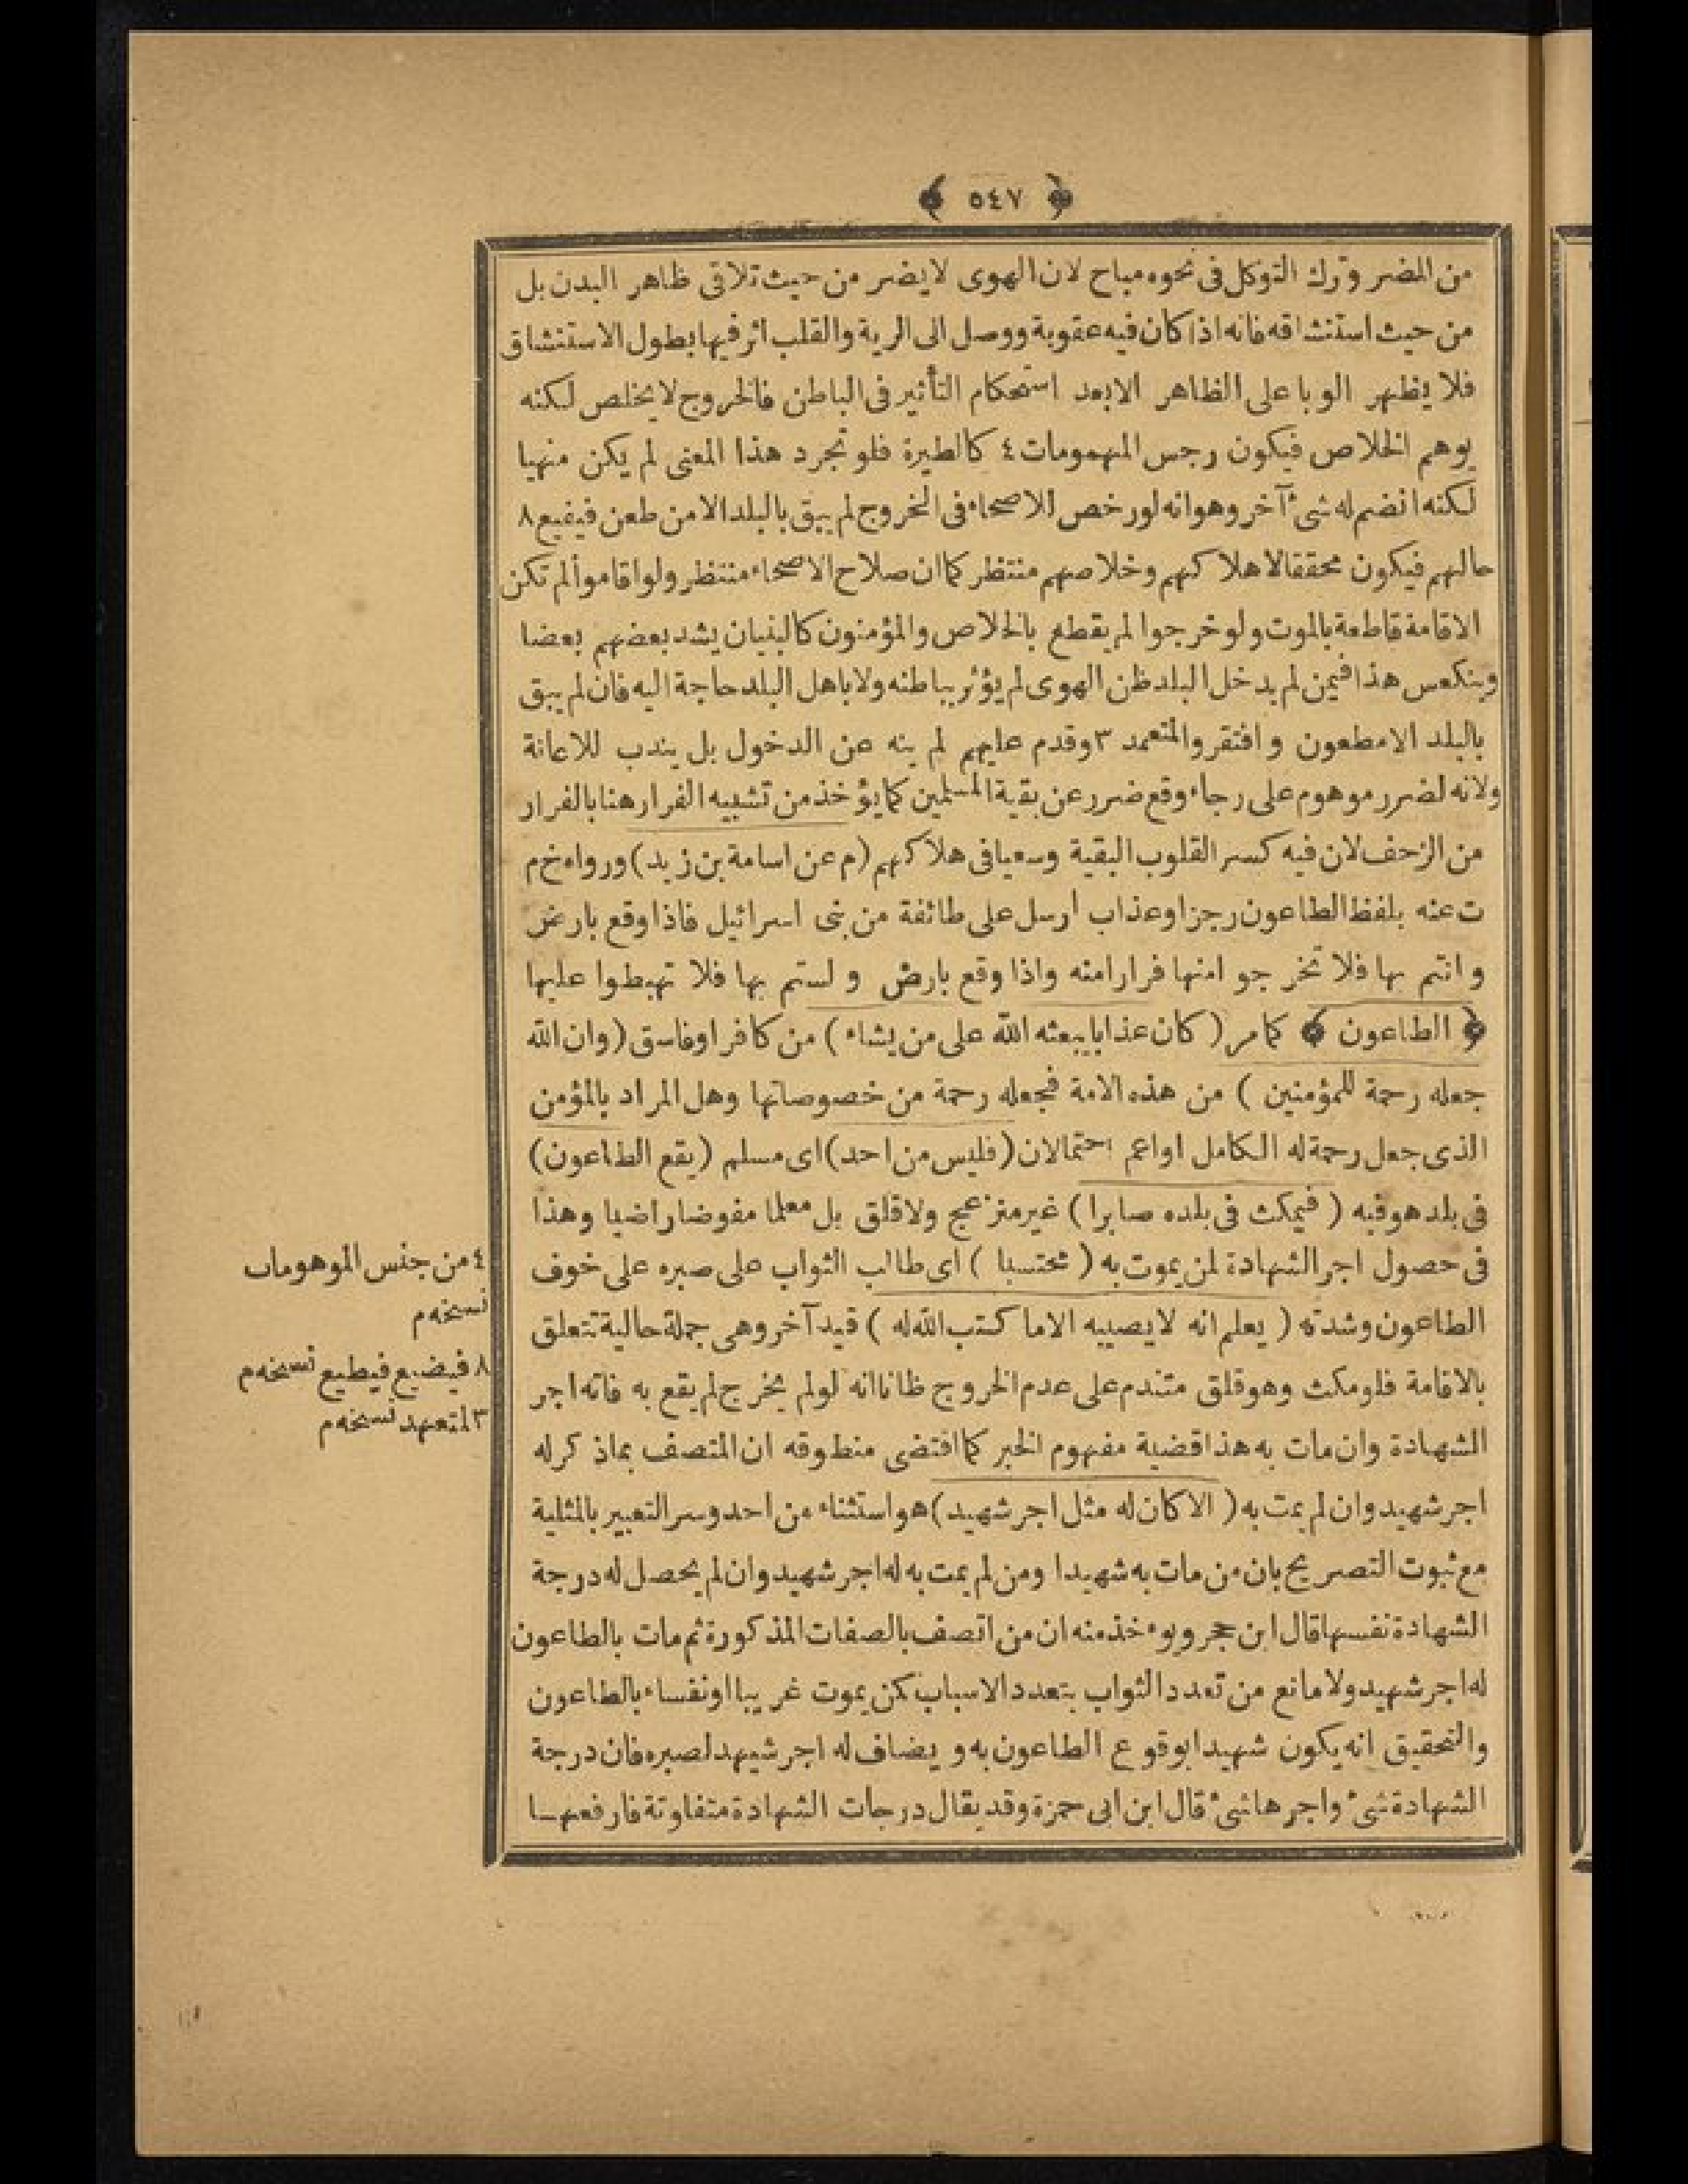 ﴿ ٥٤٧ ﴾
من المضر وترك التوكل فى نحوه مباح لان الهوى لايضر من حيث تلاقى ظاهر البدن بل
من حيث استنشاقه فانه اذا كان فيه عقوبة ووصل الى الرية والقلب اثر فيها بطول الاستنشاق
فلا يظهر الوبا على الظاهر الابعد استحكام التأثير فى الباطن فالخروج لايخلص لكنه
يوهم الخلاص فيكون رجس المهمومات ٤ كالطيرة فلو تجرد هذا المعنى لم يكن منهيا
لكنه انضم له شئ آخر وهوانه لورخص للاصحاء فى الخروج لم يبق بالبلد الامن طعن فيفيع ٨
حالهم فيكون محققا لاهلاكهم وخلاصهم منتظر كما ان صلاح الاصحاء منتظر ولواقاموا لم تكن
الاقامة قاطعة بالموت ولوخرجوا لم يقطع بالخلاص والمؤمنون كالبنيان يشد بعضهم بعضا
وينعكس هذا فيمن لم يدخل البلد ظن الهوى لم يؤثر بباطنه ولا باهل البلد حاجة اليه فان لم يبق
بالبلد الامطعون وافتقروا المتعمد ٣ وقدم عليهم لم ينه عن الدخول بل يندب للاعانة
ولانه لضرر موهوم على رجاء وقع ضرر عن بقية المسلمين كما يؤخذ من تشبيه الفرار هنا بالفرار
من الزحف لان فيه كسر القلوب البقية وسعيا فى هلاكهم (م عن اسامة بن زيد) ورواه خ م
ت عنه بلفظ الطاعون رجز اوعذاب أرسل على طائفة من بنى اسرائيل فاذا وقع بارض
وانتم بها فلا تخرجو امنها فرارا منه واذا وقع بارض ولستم بها فلا تهبطوا عليها
﴿ الطاعون ﴾ كمامر (كان عذابا يبعثه الله على من يشاء) من كافر اوفاسق (وان الله
جعله رحمة للمؤمنين) من هذه الامة فجعله رحمة من خصوصاتها وهل المراد بالمؤمن
الذى جعل رحمة له الكامل اواعم احتمالان (فليس من احد) اى مسلم (يقع الطاعون)
فى بلد هوفيه (فيمكث فى بلده صابرا) غير منزعج ولاقلق بل معلما مفوضا راضيا وهذا
فى حصول اجر الشهادة لمن يموت به (محتسبا) اى طالب الثواب على صبره على خوف
الطاعون وشدته (يعلم انه لايصيبه الاما كتب الله له) قيد آخر وهى جملة حالية تتعلق
بالاقامة فلومكث وهوقلق متندم على عدم الخروج ظانا انه لولم يخرج لم يقع به فاته اجر
الشهادة وان مات به هذا قضية مفهوم الخبر كما اقتضى منطوقه ان المتصف بماذكر له
اجر شهيد وان لم يمت به (الاكان له مثل اجر شهيد) هو استثناء من احد وسر التعبير بالمثلية
مع ثبوت التصريح بان من مات به شهيدا ومن لم يمت به له اجر شهيد وان لم يحصل له درجة
الشهادة نفسها قال ابن حجر ويوءخذ منه ان من اتصف بالصفات المذكورة ثم مات بالطاعون
له اجر شهيد ولا مانع من تعدد الثواب بتعدد الاسباب كمن يموت غريبا اونفساء بالطاعون
والتحقيق انه يكون شهيدا بوقوع الطاعون به ويضاف له اجر شيهد لصبره فان درجة
الشهادة شئ واجرها شئ قال ابن ابى حمزة وقد يقال درجات الشهادة متفاوتة فارفعها
٤ من جنس الموهومات
نسخه م
٨ فيضيع فيطيع نسخه م
٣ لمتعهد نسخه م